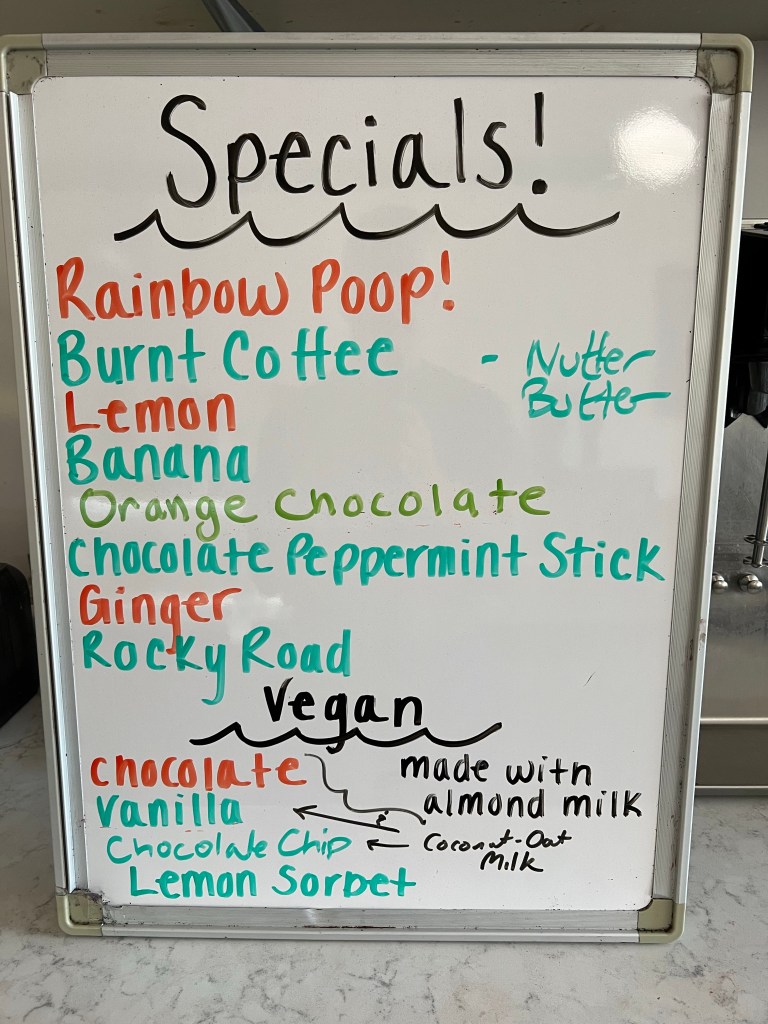 Specials!
Rainbow Poop!
Burnt Coffee - Nutter
Butter
Lemon
Banana
Orange Chocolate
Chocolate Peppermint Stick
Ginger
Rocky Road
Vegan
Chocolate made with
almond milk
Vanilla
Chocolate Chip ← Coconut-Oat
Milk
Lemon Sorbet